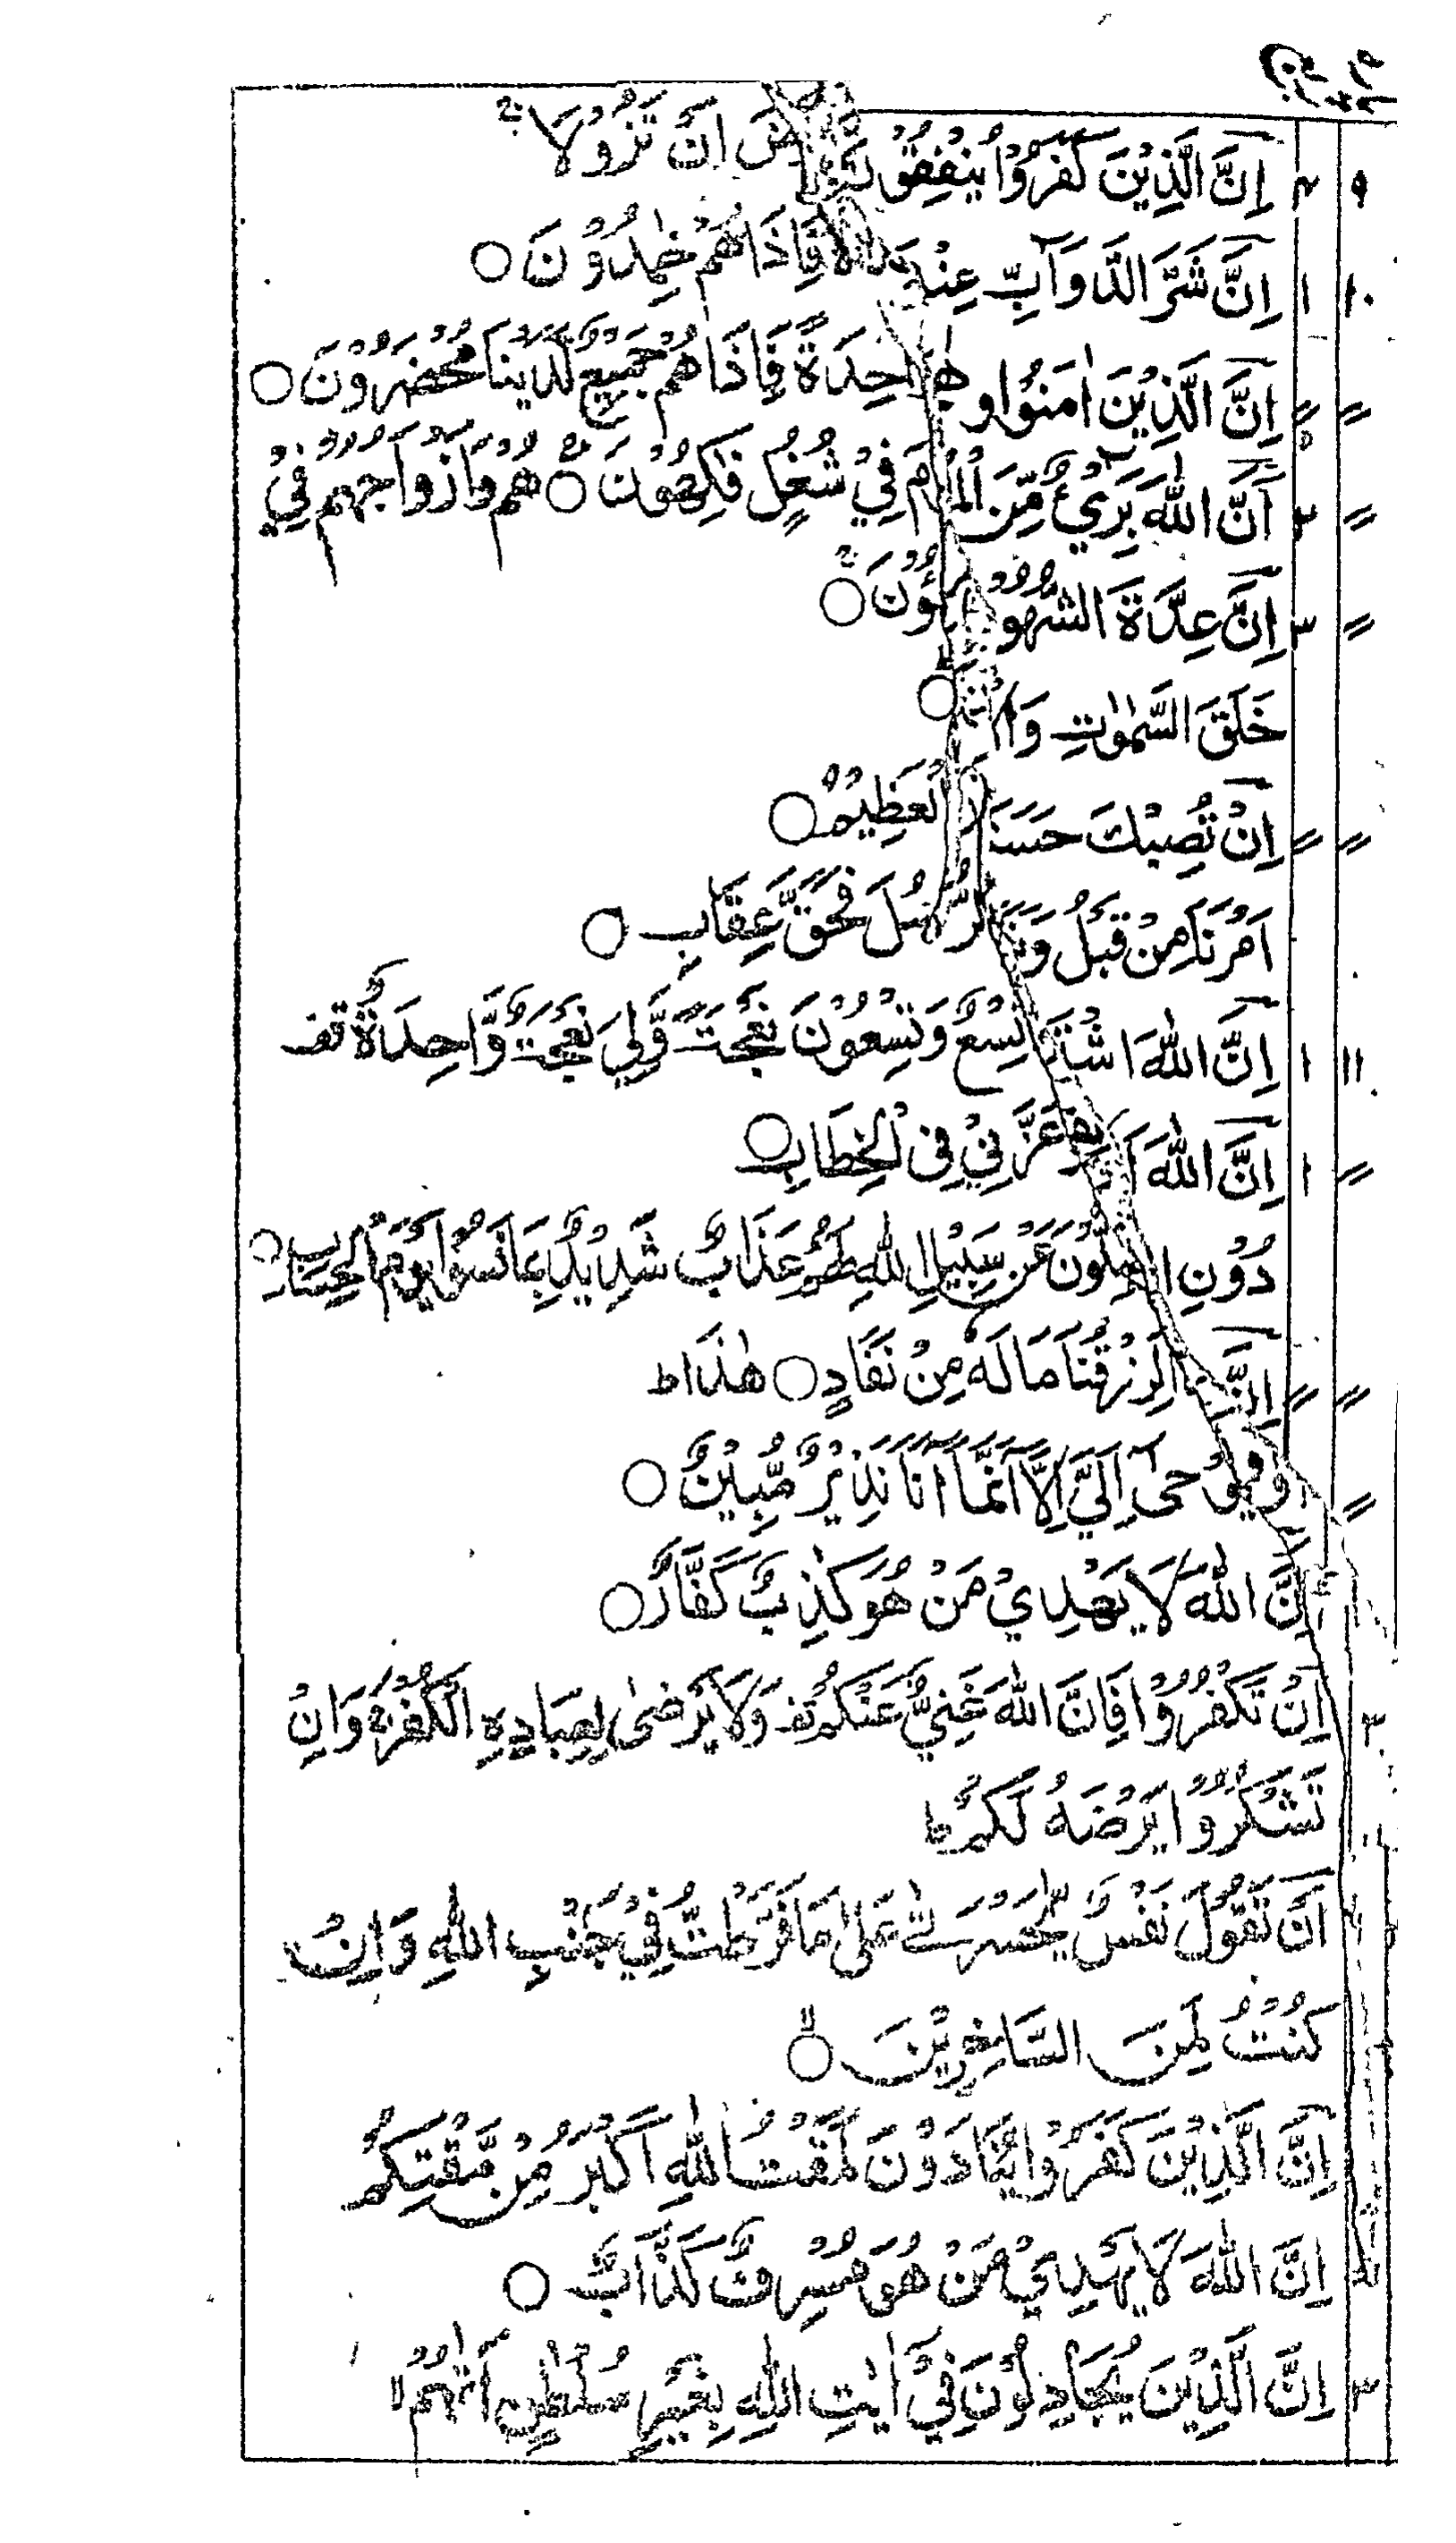 اِنَّ الَّذِيْنَ كَفَرُوْا يُنْفِقُوْ اَنْ تَزُوْلَا ۚ
اِنَّ شَرَّ الدَّوَآبِّ عِنْدَ فَاِذَا هُمْ خٰمِدُوْنَ ○
اِنَّ الَّذِيْنَ اٰمَنُوْا وَ احِدَةً فَاِذَا هُمْ جَمِيْعٌ لَّدَيْنَا مُحْضَرُوْنَ ○
اَنَّ اللّٰهَ بَرِيْٓءٌ مِّنَ الْمُ مَ فِيْ شُغُلٍ فٰكِهُوْنَ ○ هُمْ وَاَزْوَاجُهُمْ فِيْ
اِنَّ عِدَّةَ الشُّهُوْ ـُٔوْنَ ○
خَلَقَ السَّمٰوٰتِ وَا ○
اِنْ تُصِبْكَ حَسَنَ الْعَظِيْمُ ○
اَمْرَنَا مِنْ قَبْلُ وَيَ الرُّسُلَ فَحَقَّ عِقَابِ ○
اِنَّ اللّٰهَ اشْتَ تِسْعٌ وَّتِسْعُوْنَ نَعْجَةً وَّلِيَ نَعْجَةٌ وَّاحِدَةٌ قف
اِنَّ اللّٰهَ عَزَّنِيْ فِى الْخِطَابِ ○
دُوْنِ ا ضِلُّوْنَ عَنْ سَبِيْلِ اللّٰهِ لَهُمْ عَذَابٌ شَدِيْدٌۢ بِمَا نَسُوْا يَوْمَ الْحِسَابِ ○
لَرِزْقُنَا مَا لَهٗ مِنْ نَّفَادٍ ○ هٰذَا ط
يُوْحٰٓى اِلَيَّ اِلَّآ اَنَّمَآ اَنَا نَذِيْرٌ مُّبِيْنٌ ○
اِنَّ اللّٰهَ لَا يَهْدِيْ مَنْ هُوَ كٰذِبٌ كَفَّارٌ ○
اِنْ تَكْفُرُوْا فَاِنَّ اللّٰهَ غَنِيٌّ عَنْكُمْ قف وَلَا يَرْضٰى لِعِبَادِهِ الْكُفْرَ ۚ وَاِنْ
تَشْكُرُوْا يَرْضَهُ لَكُمْ ط
اَنْ تَقُوْلَ نَفْسٌ يّٰحَسْرَتٰى عَلٰى مَا فَرَّطْتُّ فِيْ جَنْۢبِ اللّٰهِ وَاِنْ
كُنْتُ لَمِنَ السَّاخِرِيْنَ ○
اِنَّ الَّذِيْنَ كَفَرُوْا يُنَادَوْنَ لَمَقْتُ اللّٰهِ اَكْبَرُ مِنْ مَّقْتِكُمْ
اِنَّ اللّٰهَ لَا يَهْدِيْ مَنْ هُوَ مُسْرِفٌ كَذَّابٌ ○
اِنَّ الَّذِيْنَ يُجَادِلُوْنَ فِيْٓ اٰيٰتِ اللّٰهِ بِغَيْرِ سُلْطٰنٍ اَتٰىهُمْ